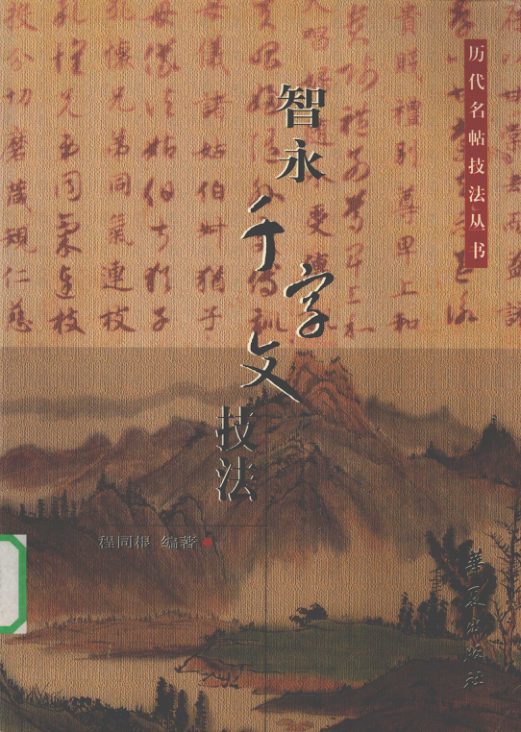 历代名帖技法丛书
智永
千字文
技法
程同根 编著
华夏出版社
貴賤禮別尊卑上和
母儀諸姑伯叔猶子
母儀諸姑伯叔猶子
懷兄弟同氣連枝
孔懷兄弟同氣連枝
投分切磨箴規仁慈